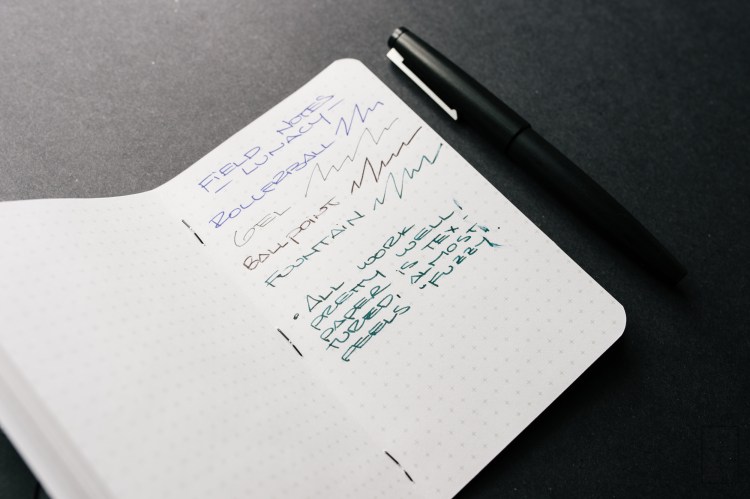 FIELD NOTES
– LUNACY –
ROLLERBALL
GEL
BALLPOINT
FOUNTAIN
• ALL WORK
PRETTY WELL!
PAPER IS TEX-
TURED. ALMOST
FEELS "FUZZY."